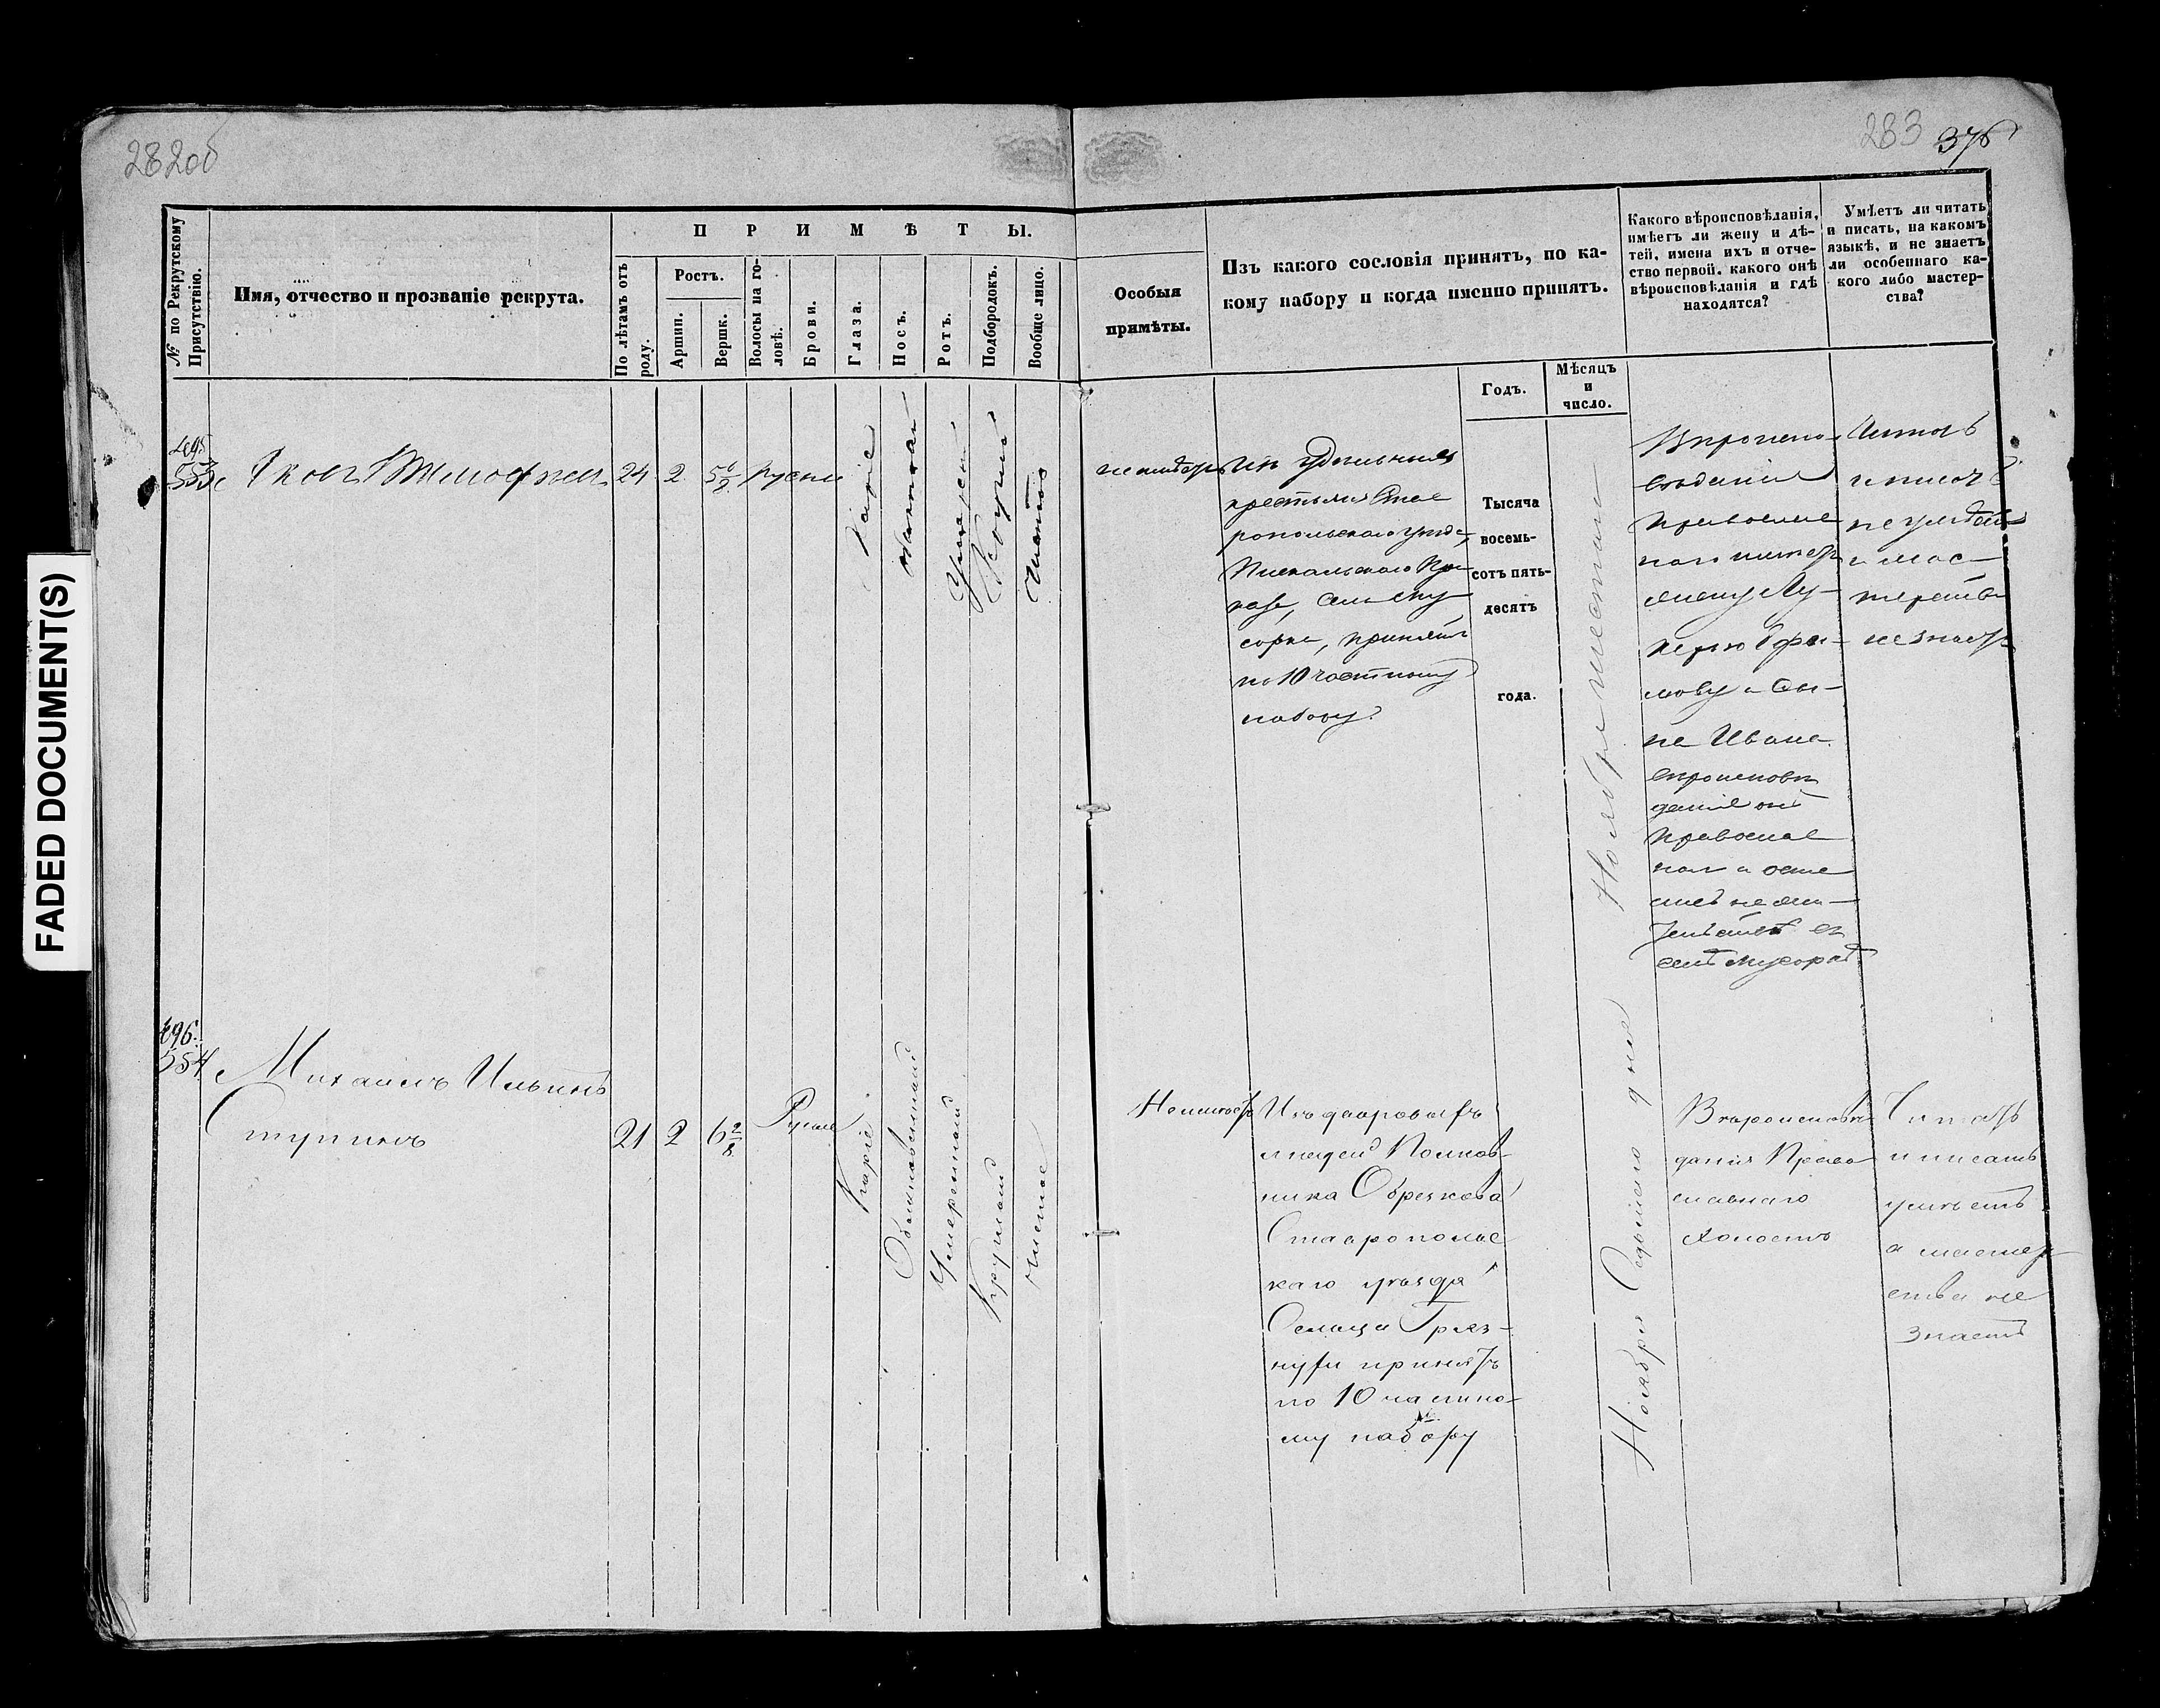 FADED DOCUMENT(S)
282об
283
376
№ по Рекрутскому Присутствію.
Имя, отчество и прозваніе рекрута.
П Р И М Ѣ Т Ы.
По лѣтамъ отъ роду.
Ростъ.
Аршин.
Вершк.
Волосы на головѣ.
Брови.
Глаза.
Носъ.
Ротъ.
Подбородокъ.
Вообще лицо.
Особыя
примѣты.
Изъ какого сословія принятъ, по ка-
кому набору и когда именно принятъ.
Годъ.
Мѣсяцъ
и
число.
Какого вѣроисповѣданія,
имѣетъ ли жену и дѣ-
тей, имена ихъ и отче-
ство первой, какого онѣ
вѣроисповѣданія и гдѣ
находятся?
Умѣетъ ли читать
и писать, на какомъ
языкѣ, и не знаетъ
ли особеннаго ка-
кого либо мастер-
ства?
495
553
24
2
Русые
Каріе
Чистое
неимѣетъ
Изъ удѣльныхъ
крестьянъ Став
ропольскаго уѣзда,
приказа, села Му
сорки, принятъ
по 10 частному
набору.
Тысяча
восемь-
сотъ пять-
десятъ
года.
Ноября шестаго
Вѣроиспо-
вѣданія
Православ
на Ивана
вѣроисповѣ
даніе онѣ
Православ
селѣ Мусоркѣ
Читать
и писать
не умѣетъ
и мас-
терства
не знаетъ
496.
554
Михаилъ Ильинъ
Ступинъ
21
2
6 2/8
Русые
Каріе
Обыкновенный
Умеренный
Круглый
Чистое
Неимѣетъ
Изъ дворовыхъ
людей Полков-
ника Обрезкова
Ставрополь
каго уѣзда
Сельца Гряз-
нухи принятъ
по 10 частно-
му набору
Ноября Седьмаго дня
Вѣроисповѣ
данія Право
славнаго
холостъ
Читать
и писать
умѣетъ
а мастер
ства не
знаетъ